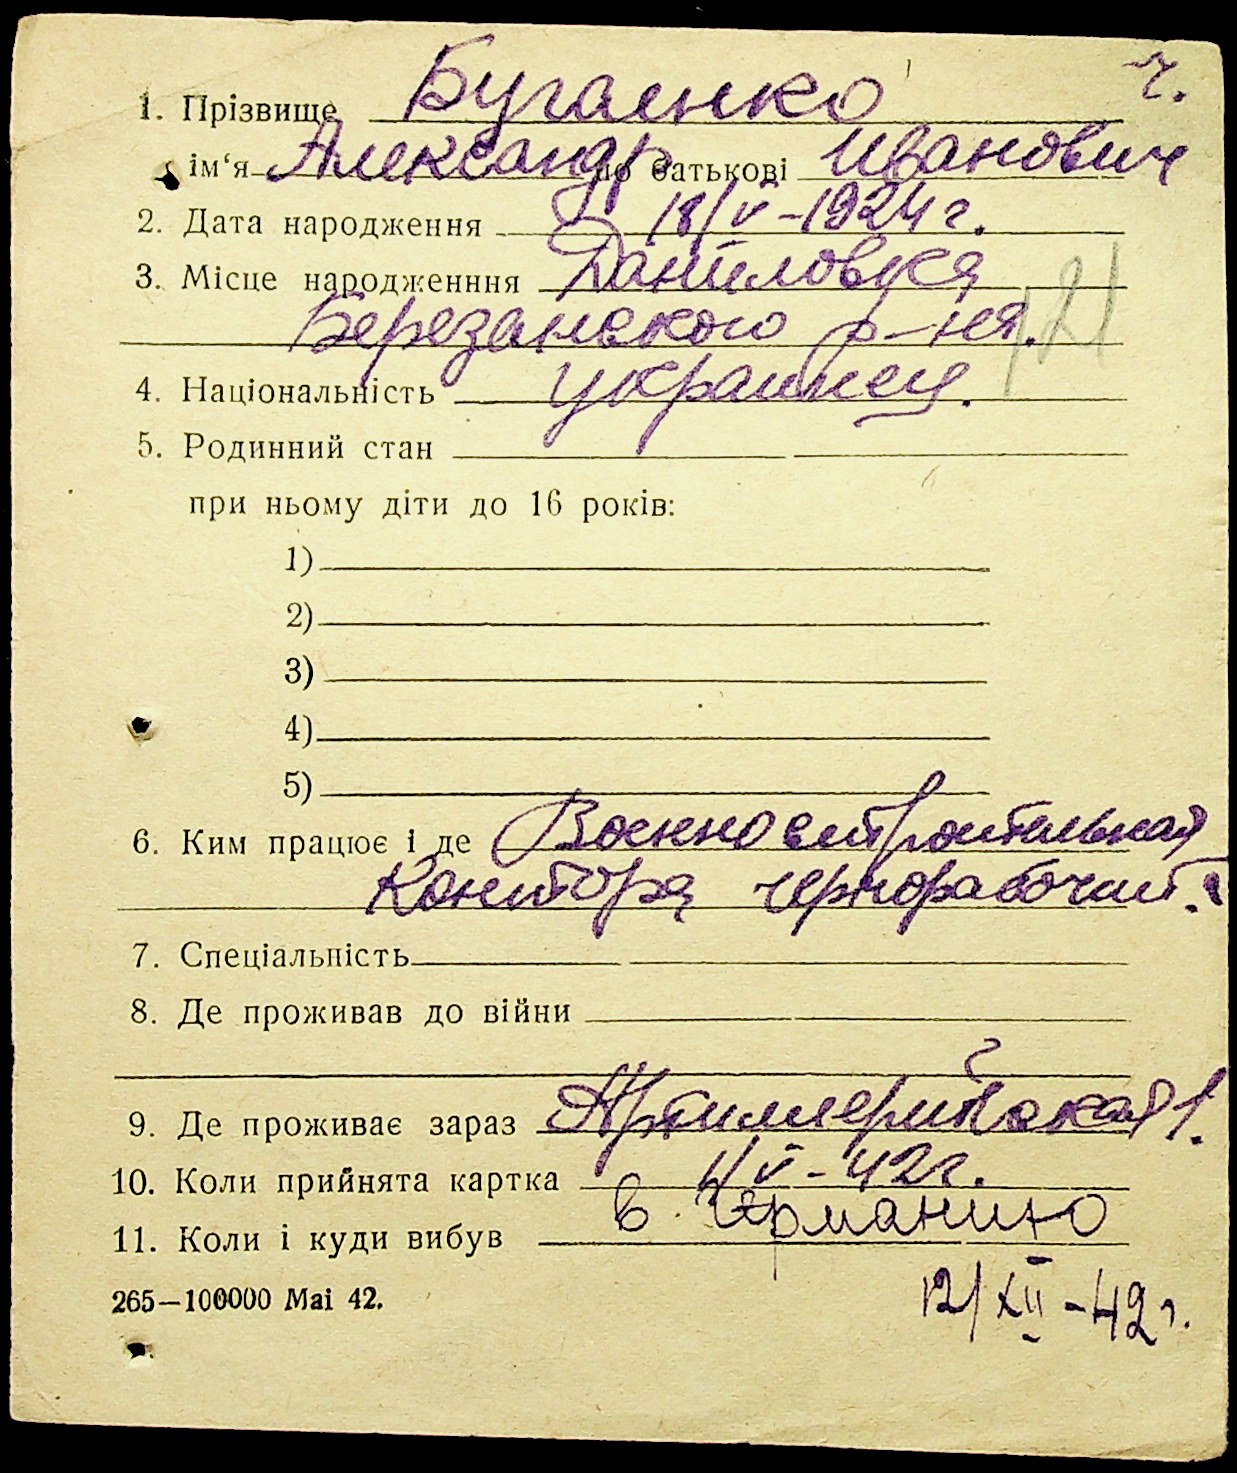 ч.
1. Прізвище Бугаенко
ім‘я Александр по батькові Иванович
2. Дата народження 18/V-1924 г.
3. Місце народженння Даниловка
Березанского р-на.
121
4. Національність украинец.
5. Родинний стан
при ньому діти до 16 років:
1)
2)
3)
4)
5)
6. Ким працює і де Военно строительная
Контора чернорабочий.
7. Спеціальність
8. Де проживав до війни
9. Де проживає зараз Артиллерийская 1.
10. Коли прийнята картка V-42 г.
11. Коли і куди вибув в Германию
265—100000 Mai 42.
12/XII-42 г.